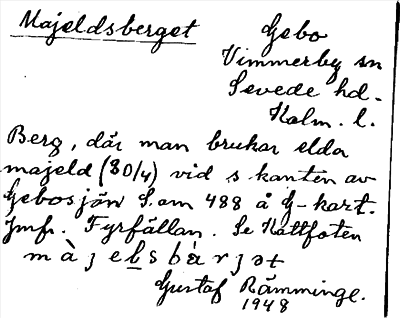 Majeldsberget
Gebo
Vimmerby sn
Sevede hd.
Kalm. l.
Berg, där man brukar elda
majeld (30/4) vid s kanten av
Gebosjön S. om 488 å G-kart.
Jmfr. Fyrfällan. Se Kattfoten
m à j e l s b æ̀ r j ə t
Gustaf Rämminge.
1948